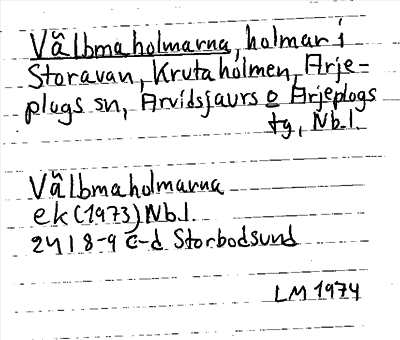 Välbmaholmarna, holmar i
Storavan, Krutaholmen, Arje-
plogs sn, Arvidsjaurs o Arjeplogs
tg, Nbl.
Välbmaholmarna
ek (1973) Nbl.
24I 8-9 c-d Storbodsund
LM 1974